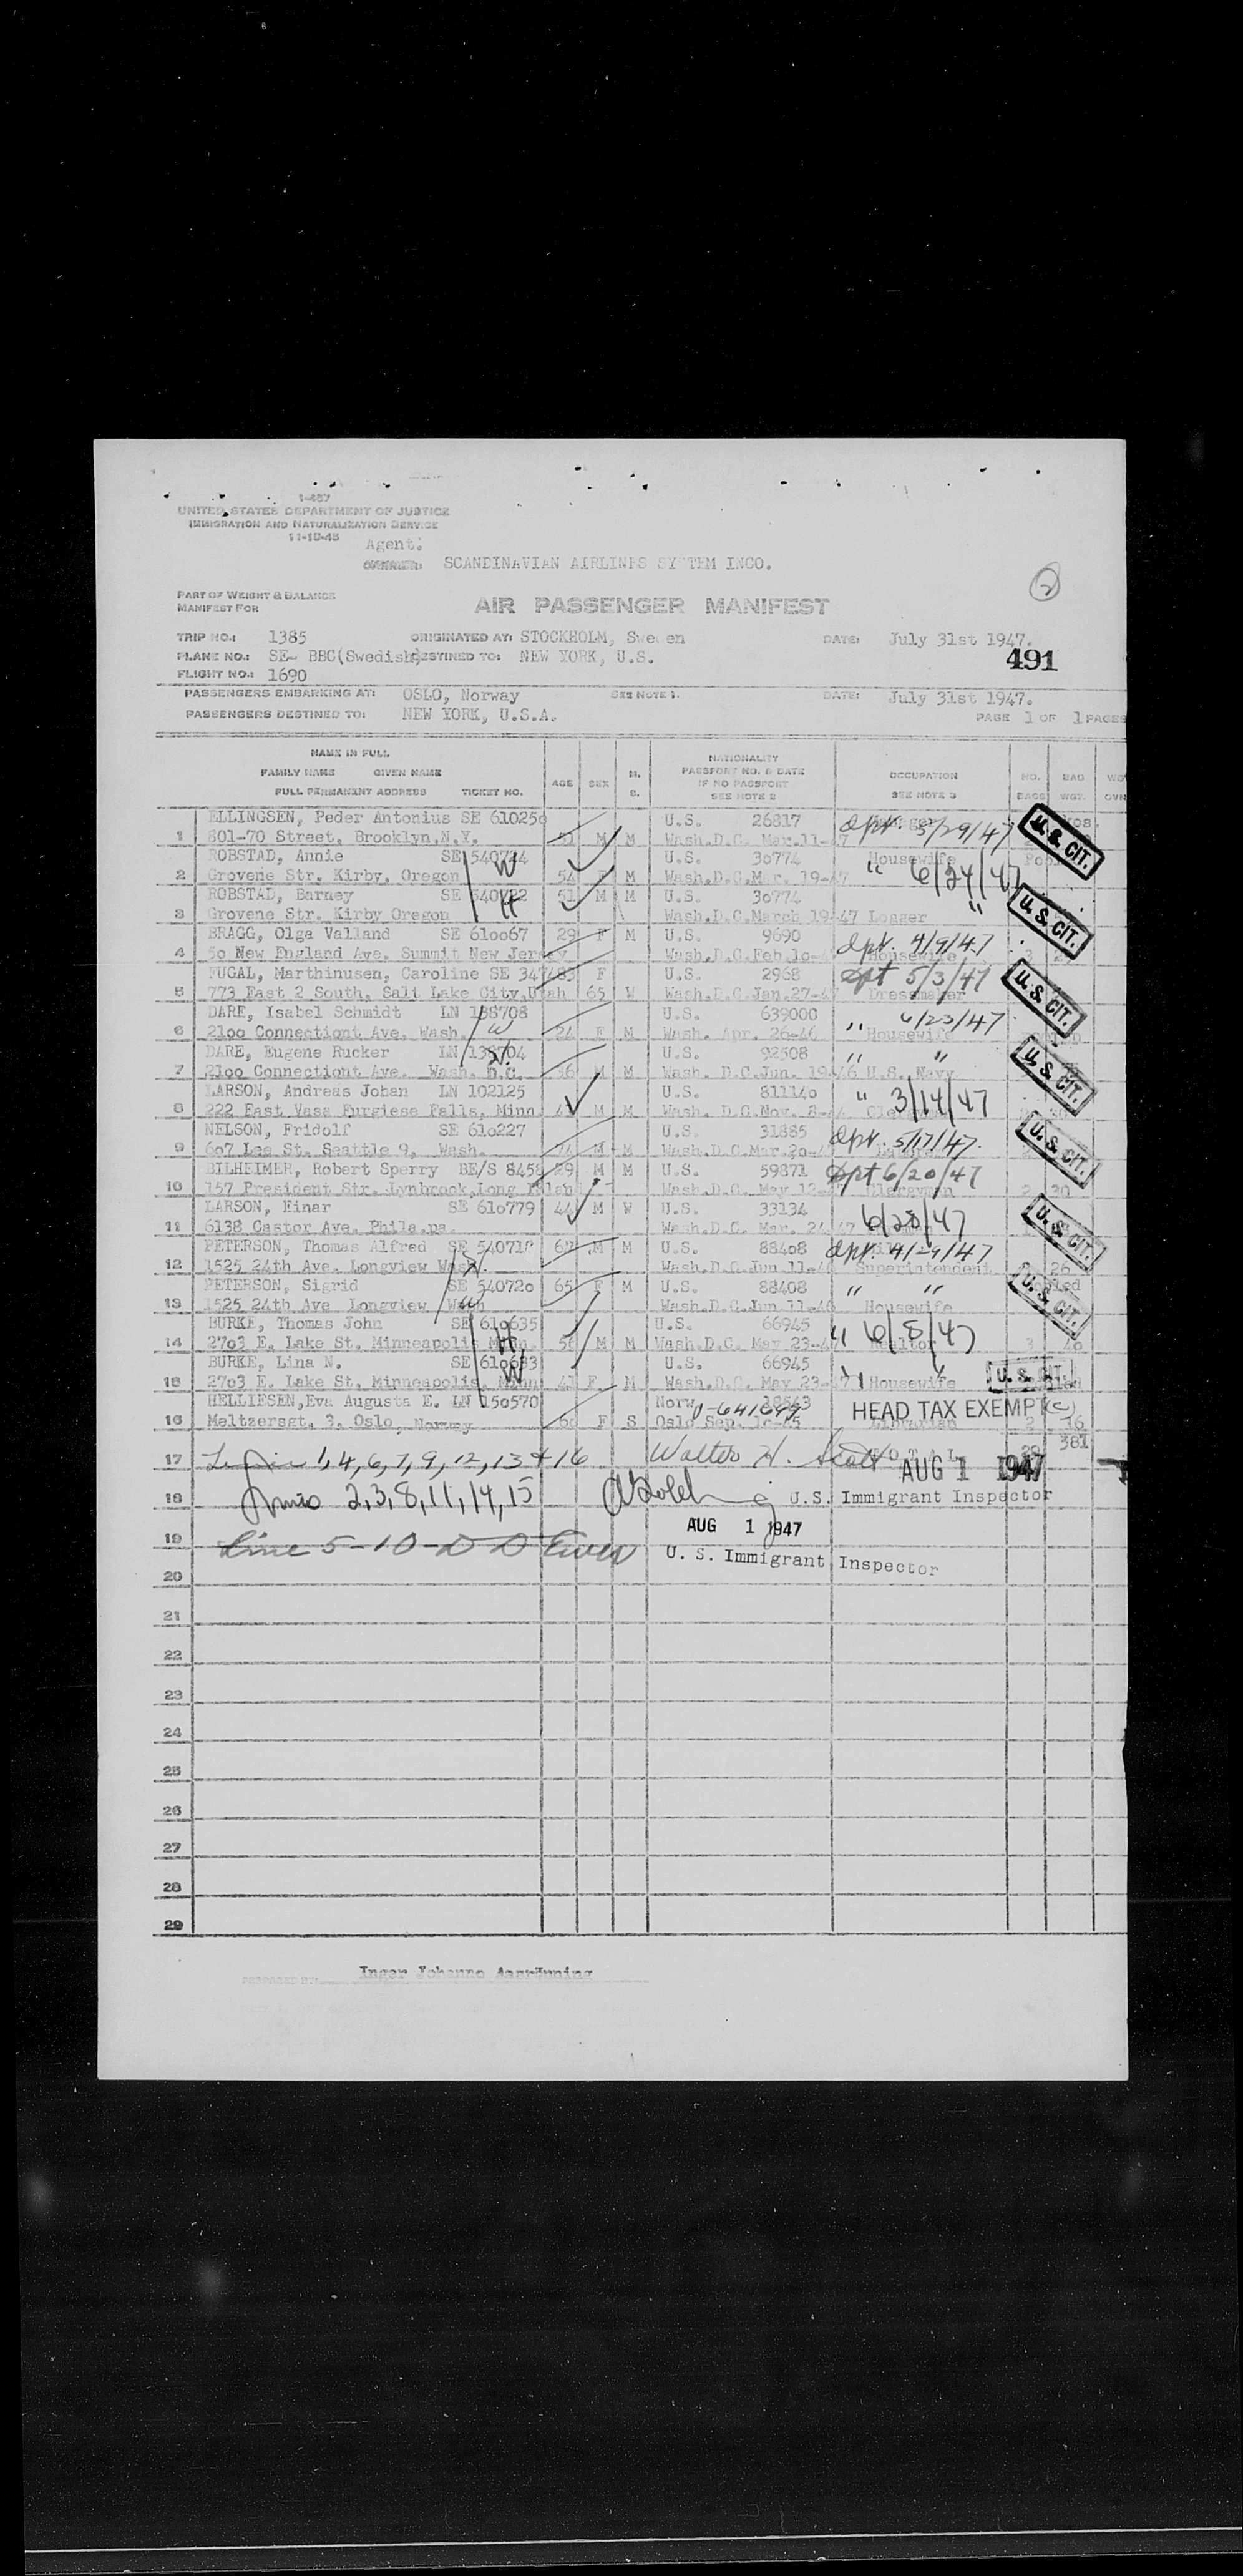 I-457
UNITED STATES DEPARTMENT OF JUSTICE
IMMIGRATION AND NATURALIZATION SERVICE
11-10-45
Agent:
SCANDINAVIAN AIRLINES SYSTEM INCO.
2
PART OF WEIGHT & BALANCE
MANIFEST FOR
AIR PASSENGER MANIFEST
TRIP NO.: 1385 ORIGINATED AT: STOCKHOLM, Sweden DATE: July 31st 1947.
PLANE NO.: SE- BBC(Swedish) DESTINED TO: NEW YORK, U.S. 491
FLIGHT NO.: 1690
PASSENGERS EMBARKING AT: OSLO, Norway SEE NOTE 1. DATE: July 31st 1947.
PASSENGERS DESTINED TO: NEW YORK, U.S.A.
PAGE 1 OF 1 PAGES
NAME IN FULL
FAMILY NAME GIVEN NAME
FULL PERMANENT ADDRESS TICKET NO.
AGE SEX M. S.
NATIONALITY
PASSPORT NO. & DATE
IF NO PASSPORT
SEE NOTE 2
OCCUPATION
SEE NOTE 3
NO. BAGS BAG WGT.
ELLINGSEN, Peder Antonius SE 610250 U.S. 26817
1 801-70 Street, Brooklyn,N.Y. 51 M M Wash.D.C. Mar.11-47 dpt. 3/29/47 U.S. CIT.
ROBSTAD, Annie SE 540724 W U.S. 30774 Housewife
2 Grovene Str. Kirby, Oregon 54 F M Wash.D.C.Mar. 19-47 " 6/24/47
ROBSTAD, Barney SE 540722 H 51 M M U.S. 30774
3 Grovene Str. Kirby Oregon Wash.D.C.March 19-47 Logger " U.S. CIT.
BRAGG, Olga Valland SE 610067 29 F M U.S. 9690 dpt. 4/9/47
4 50 New England Ave. Summit New Jersey Wash.D.C.Feb.10- Housewife
FUGAL, Marthinusen, Caroline SE 347483 F U.S. 2968 dpt 5/3/47
5 773 East 2 South, Salt Lake City,Utah 65 W Wash.D.C.Jan.27-47 Dressmaker U.S. CIT.
DARE, Isabel Schmidt LN 138708 U.S. 639000 " 6/23/47
6 2100 Connectiont Ave. Wash. W 24 F M Wash. Apr. 26-46 Housewife
DARE, Eugene Rucker LN 138704 U.S. 92508 " "
7 2100 Connectiont Ave. Wash. D.C. 36 M M Wash. D.C.Jun. 19-46 U.S. Navy U.S. CIT.
LARSON, Andreas Johan LN 102125 U.S. 811140 " 3/14/47
8 222 East Vass Furgiese Falls, Minn. M M Wash. D.C.Nov. 8-
NELSON, Fridolf SE 610227 U.S. 31885 dpt. 5/17/47
9 607 Lee St. Seattle 9, Wash. 74 M M Wash.D.C.Mar.20-47 U.S. CIT.
BILHEIMER, Robert Sperry BE/S 8458 29 M M U.S. 59871 dpt 6/20/47
10 157 President Str. Lynbrook,Long Islan Wash.D.C. May 12- Clergyman 2 30
LARSON, Einar SE 610779 44 M W U.S. 33134 6/28/47
11 6138 Castor Ave. Phila.pa. Wash.D.C. Mar. 24-47 U.S. CIT.
PETERSON, Thomas Alfred SE 540718 67 M M U.S. 88408 dpt. 4/29/47
12 1525 24th Ave. Longview Wash. Wash.D.C.Jun.11-46 Superintendent 26
PETERSON, Sigrid SE 540720 65 F M U.S. 88408 " "
13 1525 24th Ave Longview Wash W Wash.D.C.Jun.11-46 Housewife U.S. CIT.
BURKE, Thomas John SE 610635 H U.S. 66945 " 6/8/47
14 2703 E. Lake St. Minneapolis Minn. 56 M M Wash.D.C. May 23-47 Realtor 3 40
BURKE, Lina N. SE 610633 W U.S. 66945 " "
15 2703 E. Lake St. Minneapolis, Minn 47 F M Wash.D.C. May 23-47 Housewife U.S. CIT.
HELLIESEN,Eva Augusta E. LN 150570 Norw. HEAD TAX EXEMPT (c)
16 Meltzersgt. 3, Oslo, Norway 60 F S Oslo Sep. Librarian 2 16
17 1,4,6,7,9,12,13 & 16 Walter H. Scott TOTAL 381
AUG 1 1947
18 2,3,8,11,14,15 U.S. Immigrant Inspector
19 Line 5-10- D D Ewen AUG 1 1947
U. S. Immigrant Inspector
20
21
22
23
24
25
26
27
28
29
PREPARED BY: Inger Johanne